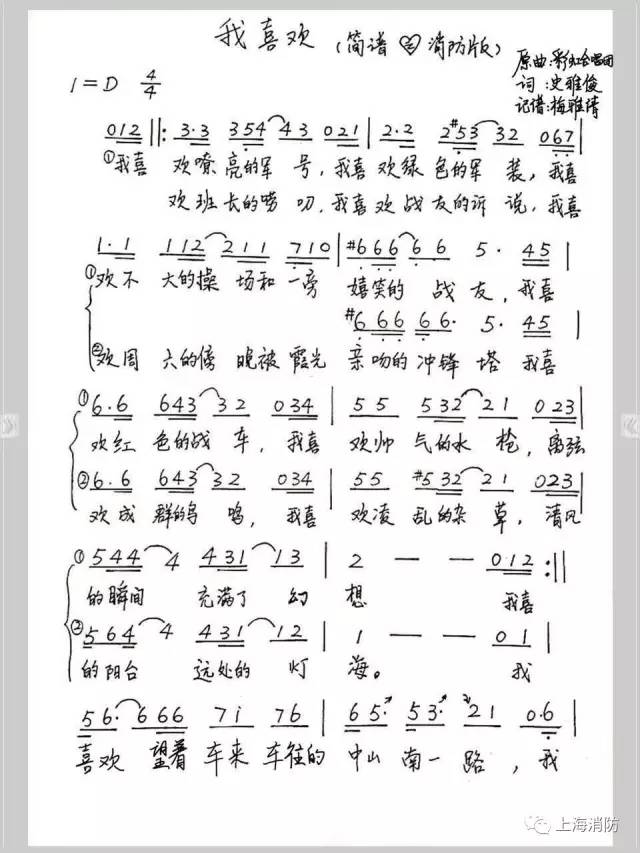 我喜欢（简谱 消防版）
原曲:彩虹合唱团
词:史雅俊
记谱:梅雅倩
1=D 4/4
012 ||: 3·3 354 43 021 | 2·2 2#53 32 067 |
①我喜 欢嘹 亮的军 号，我喜欢绿 色的军 装，我喜
欢班长的唠 叨，我喜欢战友的诉 说，我喜
1·1 112 211 710 | #666 66 5· 45 |
①欢不 大的操 场和一旁 嬉笑的 战 友，我喜
#666 66· 5· 45 |
②欢周 六的傍 晚被霞光 亲吻的冲锋 塔 我喜
① 6·6 643 32 034 | 55 532 21 023 |
欢红 色的战 车，我喜 欢帅 气的水 枪，离弦
② 6·6 643 32 034 | 55 #532 21 023 |
欢成 群的鸟 鸣，我喜 欢凌 乱的杂 草，清风
① 544 4 431 13 | 2 — — 012 :||
的瞬间 充满了 幻 想 我喜
② 564 4 431 12 | 1 — — 01 |
的阳台 远处的 灯 海。 我
56· 666 71 76 | 65· 53· 21 0·6 |
喜欢 望着 车来 车往的 中山 南一 路，我
上海消防